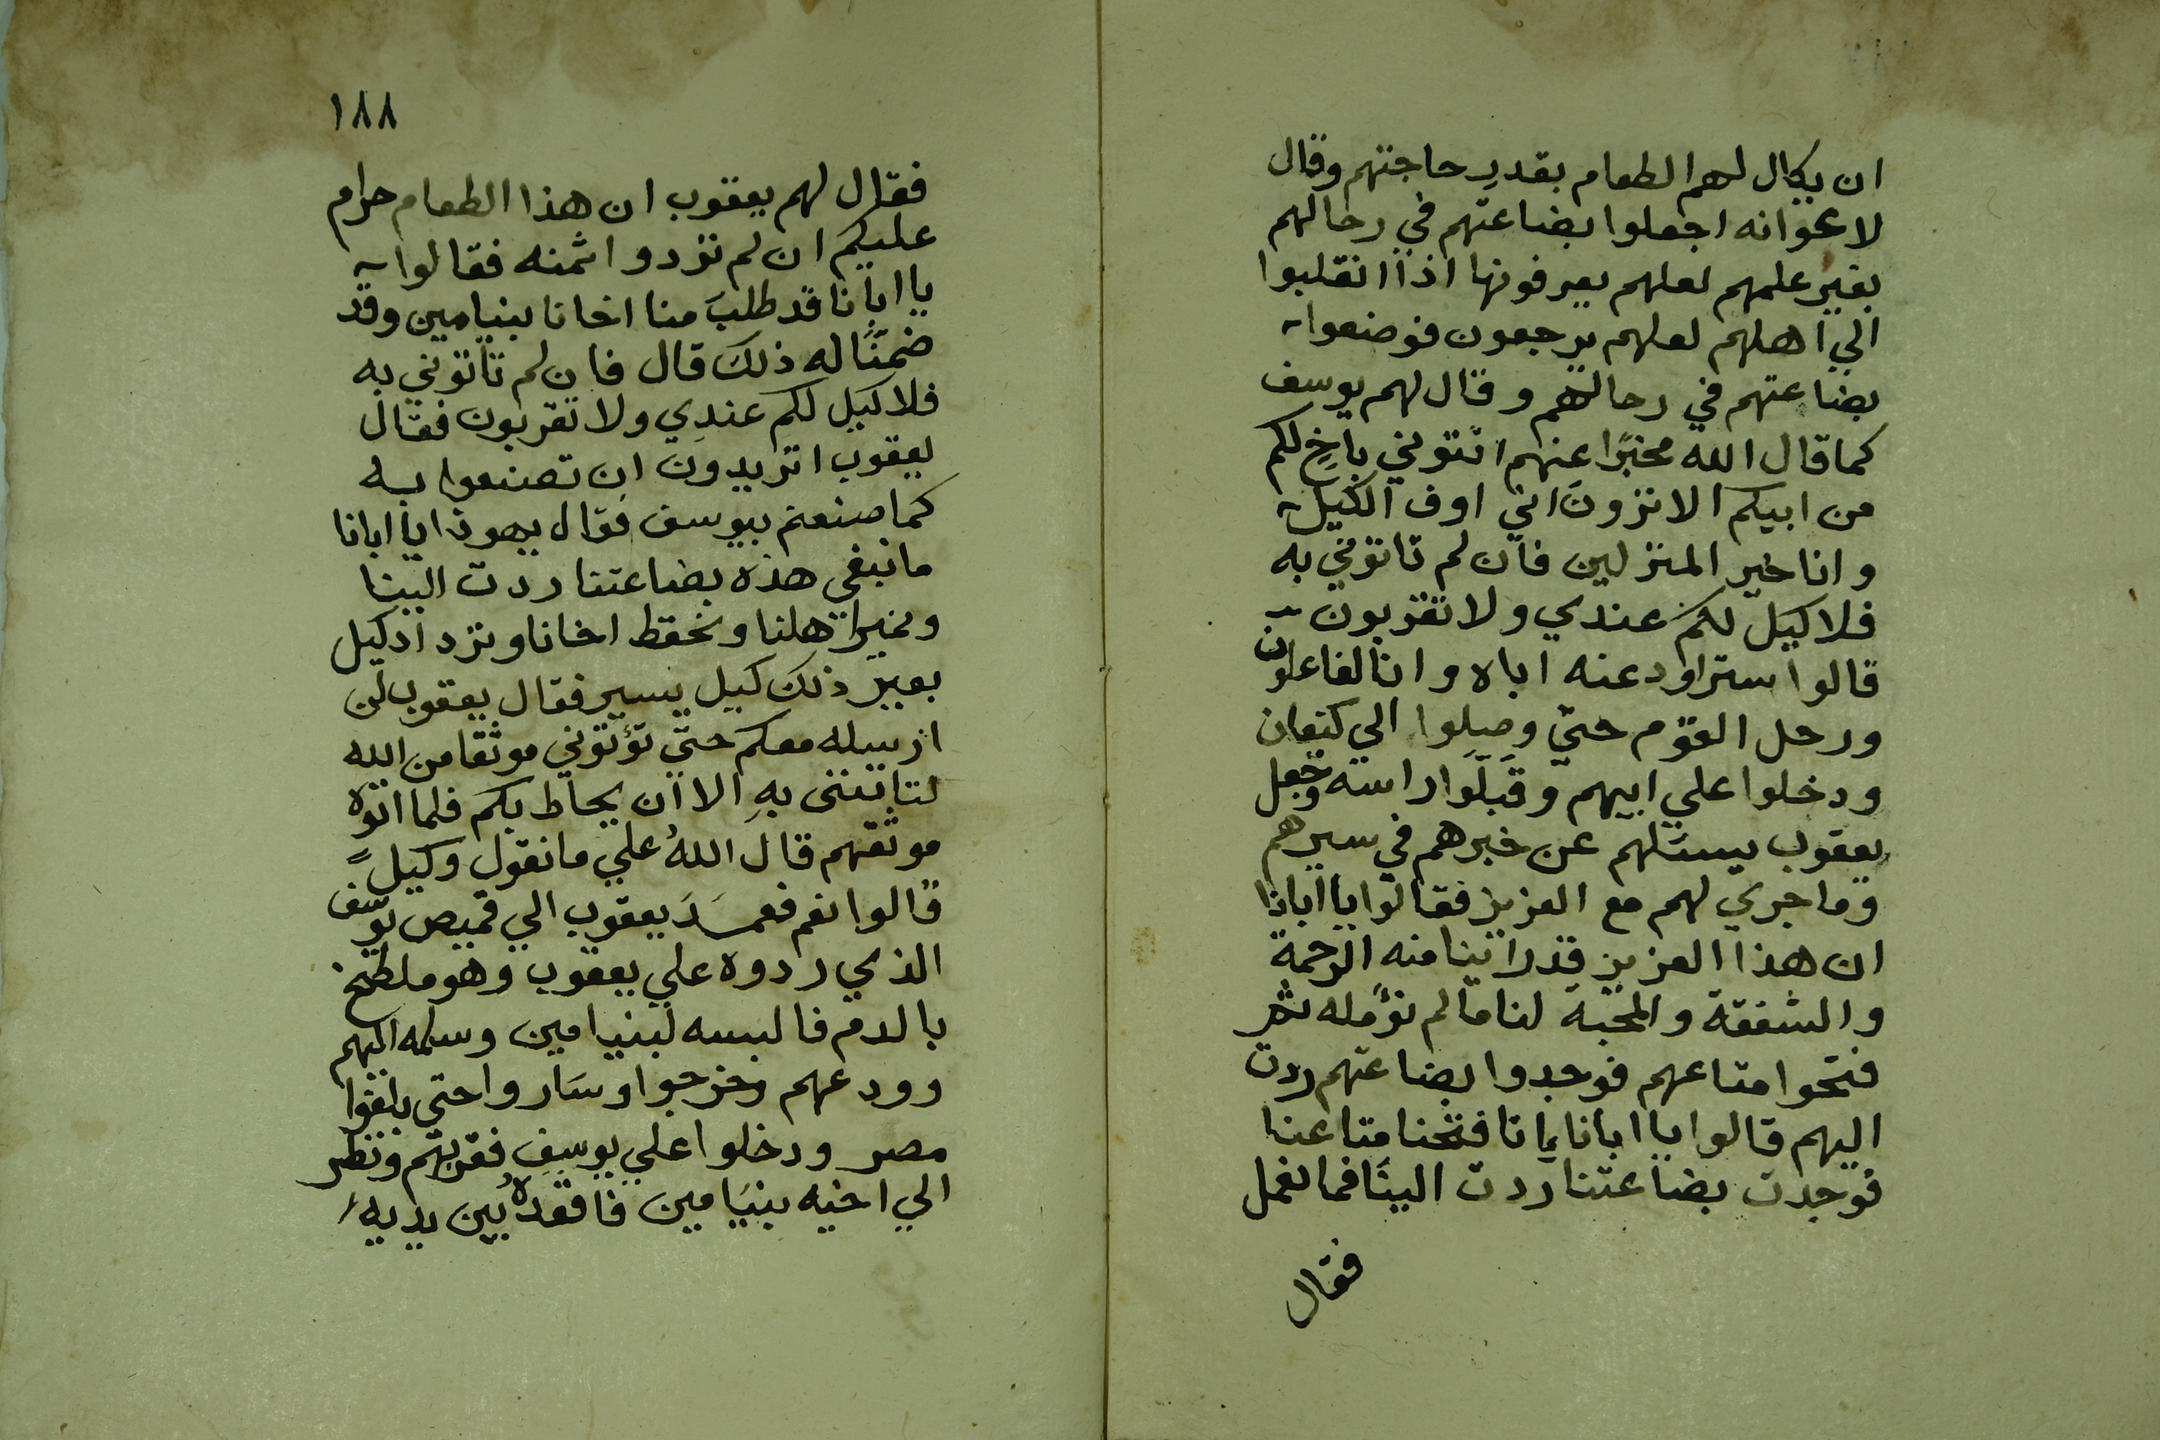 ان يكال لهم الطعام بقدر حاجتهم وقال
لاعوانه اجعلوا بضاعتهم في رحالهم
بغير علمهم لعلهم يعرفونها اذا انقلبوا
الي اهلهم لعلهم يرجعون فوضعوا
بضاعتهم في رحالهم وقال لهم يوسف
كما قال الله مخبرًا عنهم ائتوني باخٍ لكم
من ابيكم الا ترون اني اوف الكيل
وانا خير المنزلين فان لم تاتوني به
فلا كيل لكم عندي ولا تقربون
قالوا سنراود عنه اباه وانا لفاعلون
ورحل القوم حتي وصلوا الي كنعان
ودخلوا علي ابيهم وقبلوا راسه وجعل
يعقوب يسئلهم عن خبرهم في سيرهم
وما جري لهم مع العزيز فقالوا يا ابانا
ان هذا العزيز قد راينا منه الرحمة
والشفقة والمحبة لنا ما لم نؤمله ثم
فتحوا متاعهم فوجدوا بضاعتهم ردت
اليهم قالوا يا ابانا انا فتحنا متاعنا
فوجدت بضاعتنا ردت الينا فما نعمل
فقال
١٨٨
فقال لهم يعقوب ان هذا الطعام حرام
عليكم ان لم تردوا ثمنه فقالوا
يا ابانا قد طلبَ منا اخانا بنيامين وقد
ضمنّا له ذلك قال فان لم تاتوني به
فلا كيل لكم عندي ولا تقربون فقال
يعقوب اتريدون ان تصنعوا به
كما صنعتم بيوسف فقال يهوذا يا ابانا
ما نبغي هذه بضاعتنا ردت الينا
ونمير اهلنا ونحفظ اخانا ونزداد كيل
بعير ذلك كيل يسير فقال يعقوب لن
ارسله معكم حتي تؤتوني موثقا من الله
لتاتنني بهِ الا ان يحاط بكم فلما اتوه
موثقهم قال اللهُ علي ما نقول وكيل
قالوا نعم فعمدَ يعقوب الي قميص يوسف
الذي ردوه علي يعقوب وهو ملطخ
بالدم فالبسه لبنيامين وسلمه اليهم
وودعهم وخرجوا وساروا حتي بلغوا
مصر ودخلوا علي يوسف فقربهم ونظر
الي اخيه بنيامين فاقعده بين يديه